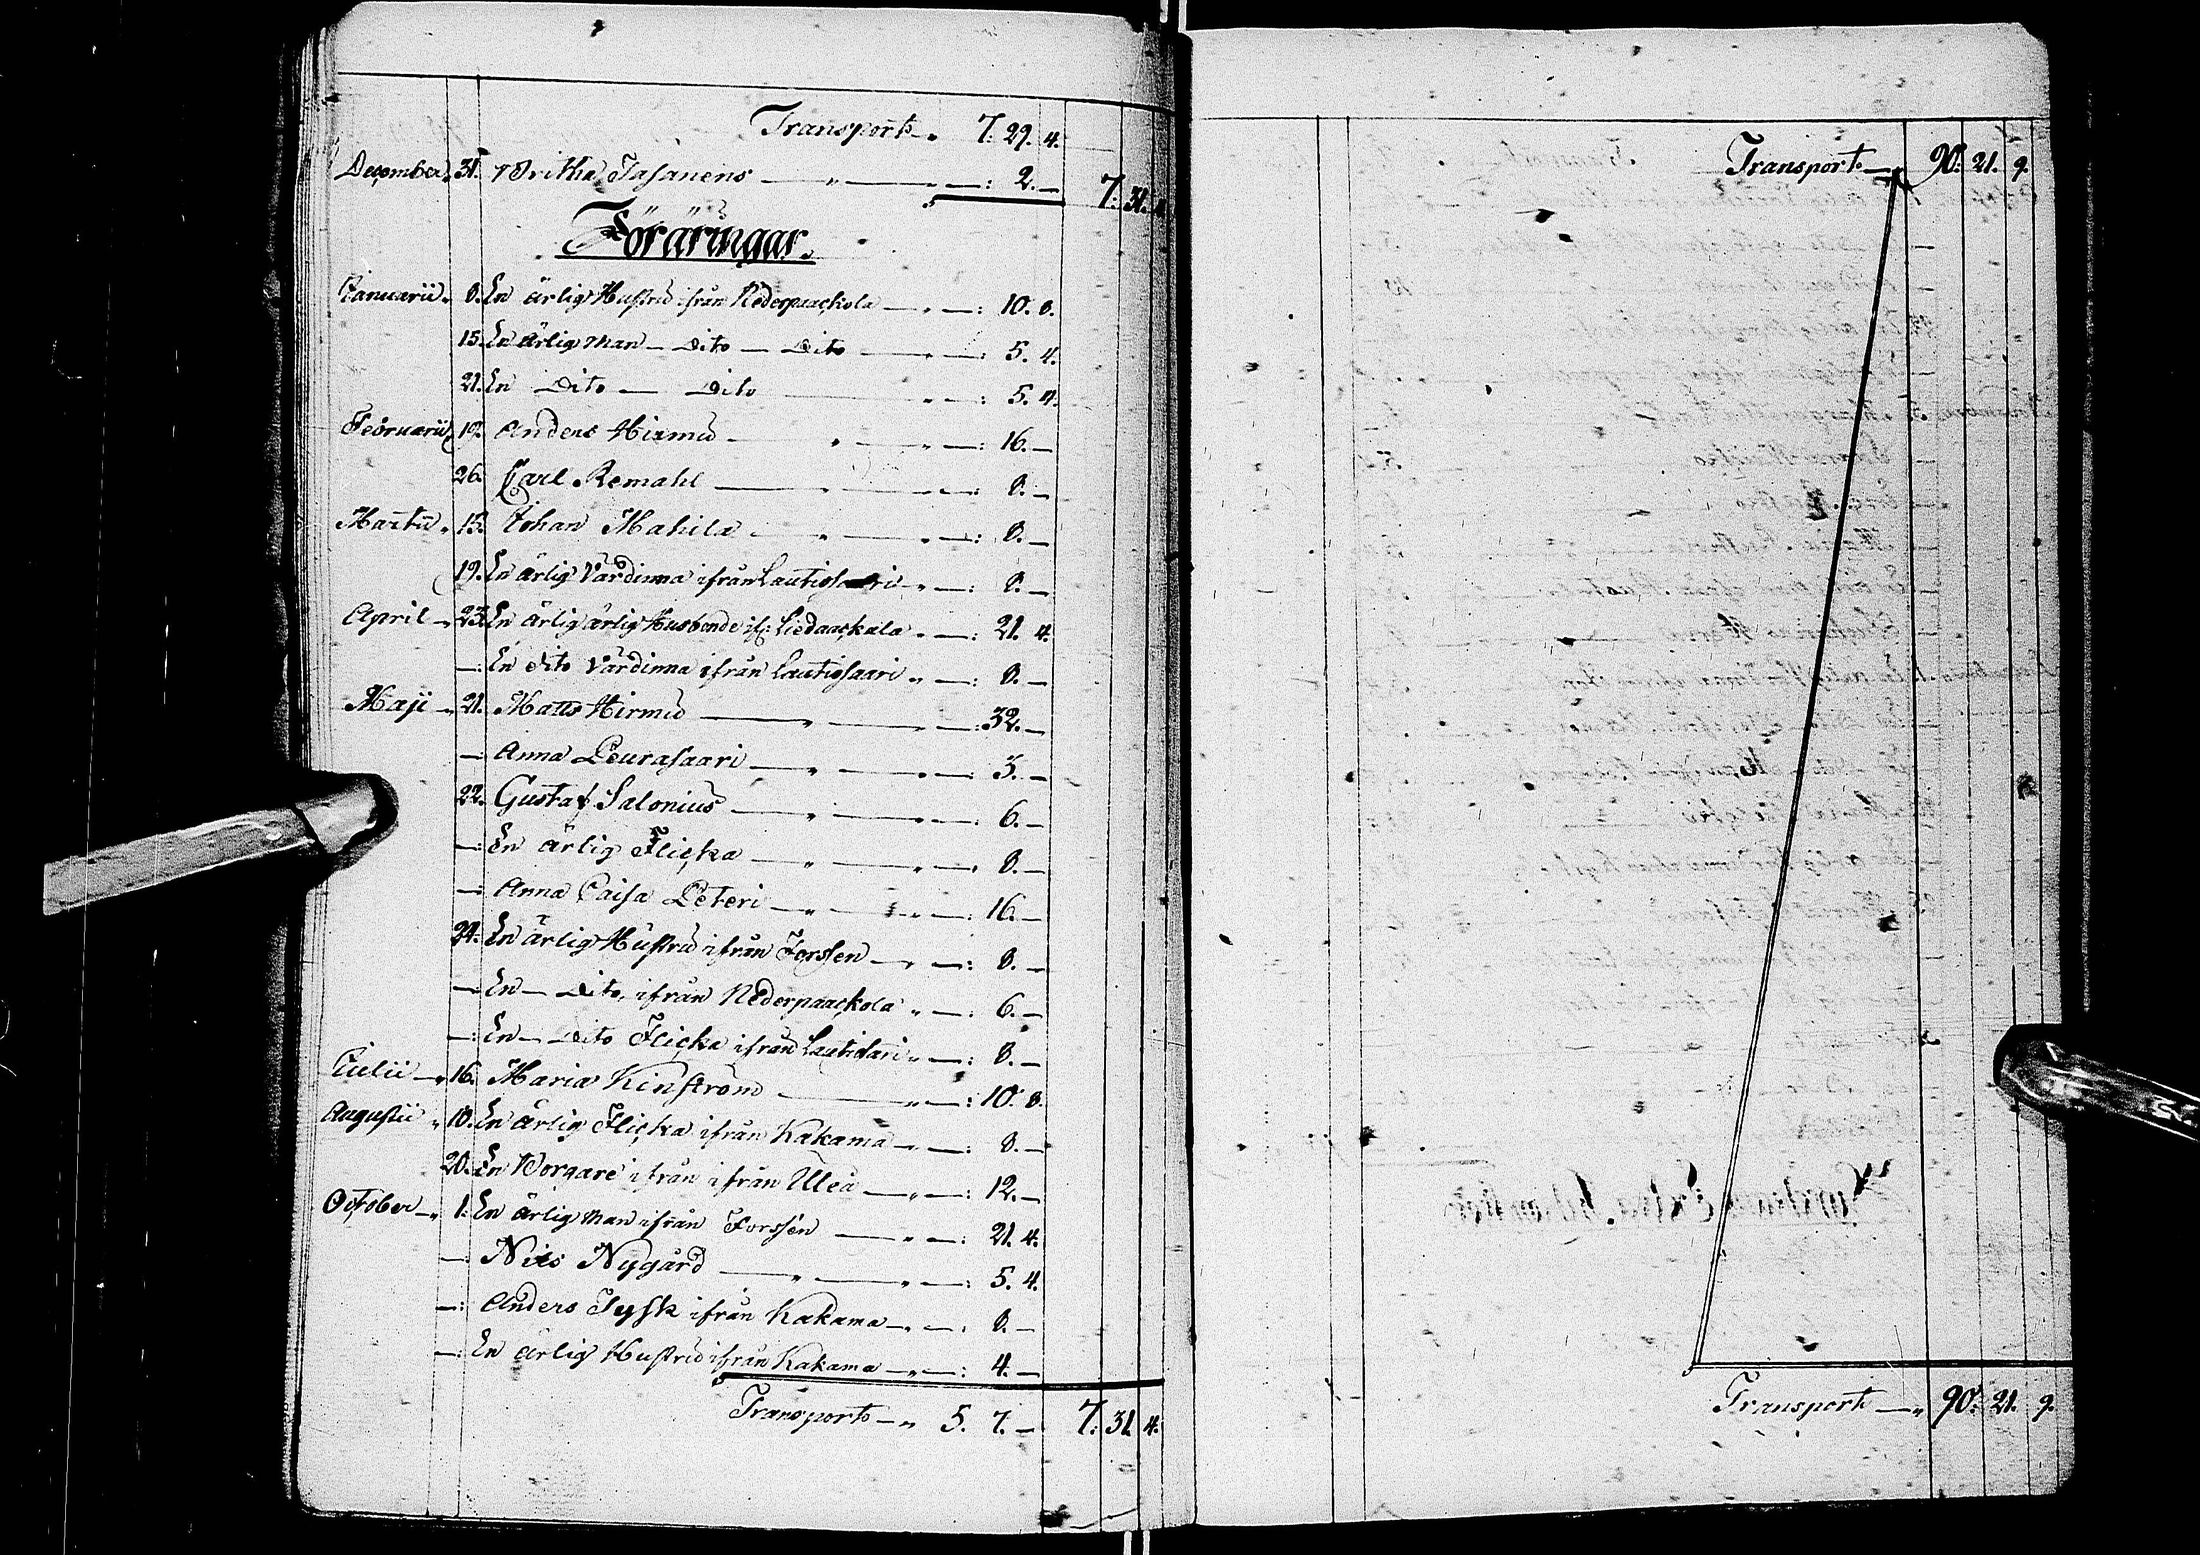 Transport „ 7. 29. 4.
December „ 31. Britha Jasanens — „ — „ — : 2. — 7: 31. 4
Föräringar.
Januarii „ 8. En ärlig Hustru ifrån Nederpaackola — „ — : 10. 8.
15. En ärlig Man — Dito — Dito — „ — : 5. 4.
21. En Dito — Dito — „ — : 5. 4.
Februarii „ 19. Anders Hirmu — „ — „ — : 16. —
26. Carl Remahl — „ — „ — : 8. —
Martii „ 15. Johan Mahila — „ — „ — : 8. —
19. En ärlig Värdinna ifrån Lautiosaari „ — : 8. —
April — „ 23. En ärlig ärlig Husbonde if: Liedaackala „ — : 21. 4.
— : En Dito Värdinna ifrån Lautiosaari „ — : 8. —
Maji — „ 21. Matts Hirmu — „ — „ — : 32. —
— : Anna Leurasaari — „ — „ — : 3. —
22. Gustaf Salonius — „ — „ — : 6. —
— : En ärlig Flicka — „ — „ — : 8. —
— : Anna Caisa Peteri — „ — „ — : 16. —
24. En ärlig Hustru ifrån Forssen — „ — : 8. —
— : En — Dito, ifrån Nederpaackola „ — : 6. —
— : En — Dito Flicka ifrån Lautiosari „ — : 8. —
Julii — „ 16. Maria Kinström — „ — : 10. 8.
Augustii „ 18. En ärlig Flicka ifrån Kakama — „ — : 8. —
20. En Borgare ifrån ifrån Uleå — „ — : 12. —
October — „ 1. En ärlig Man ifrån Forssén — „ — : 21. 4.
— : Nils Nygård — „ — „ — : 5. 4.
— : Anders Tysk ifrån Kakama — „ — : 8. —
— : En ärlig Hustru ifrån Kakama — „ — : 4. —
Transport — „ 5. 7. — 7. 31. 4.
Transport — „ 90. 21. 9.
Transport — „ 90. 21. 9.